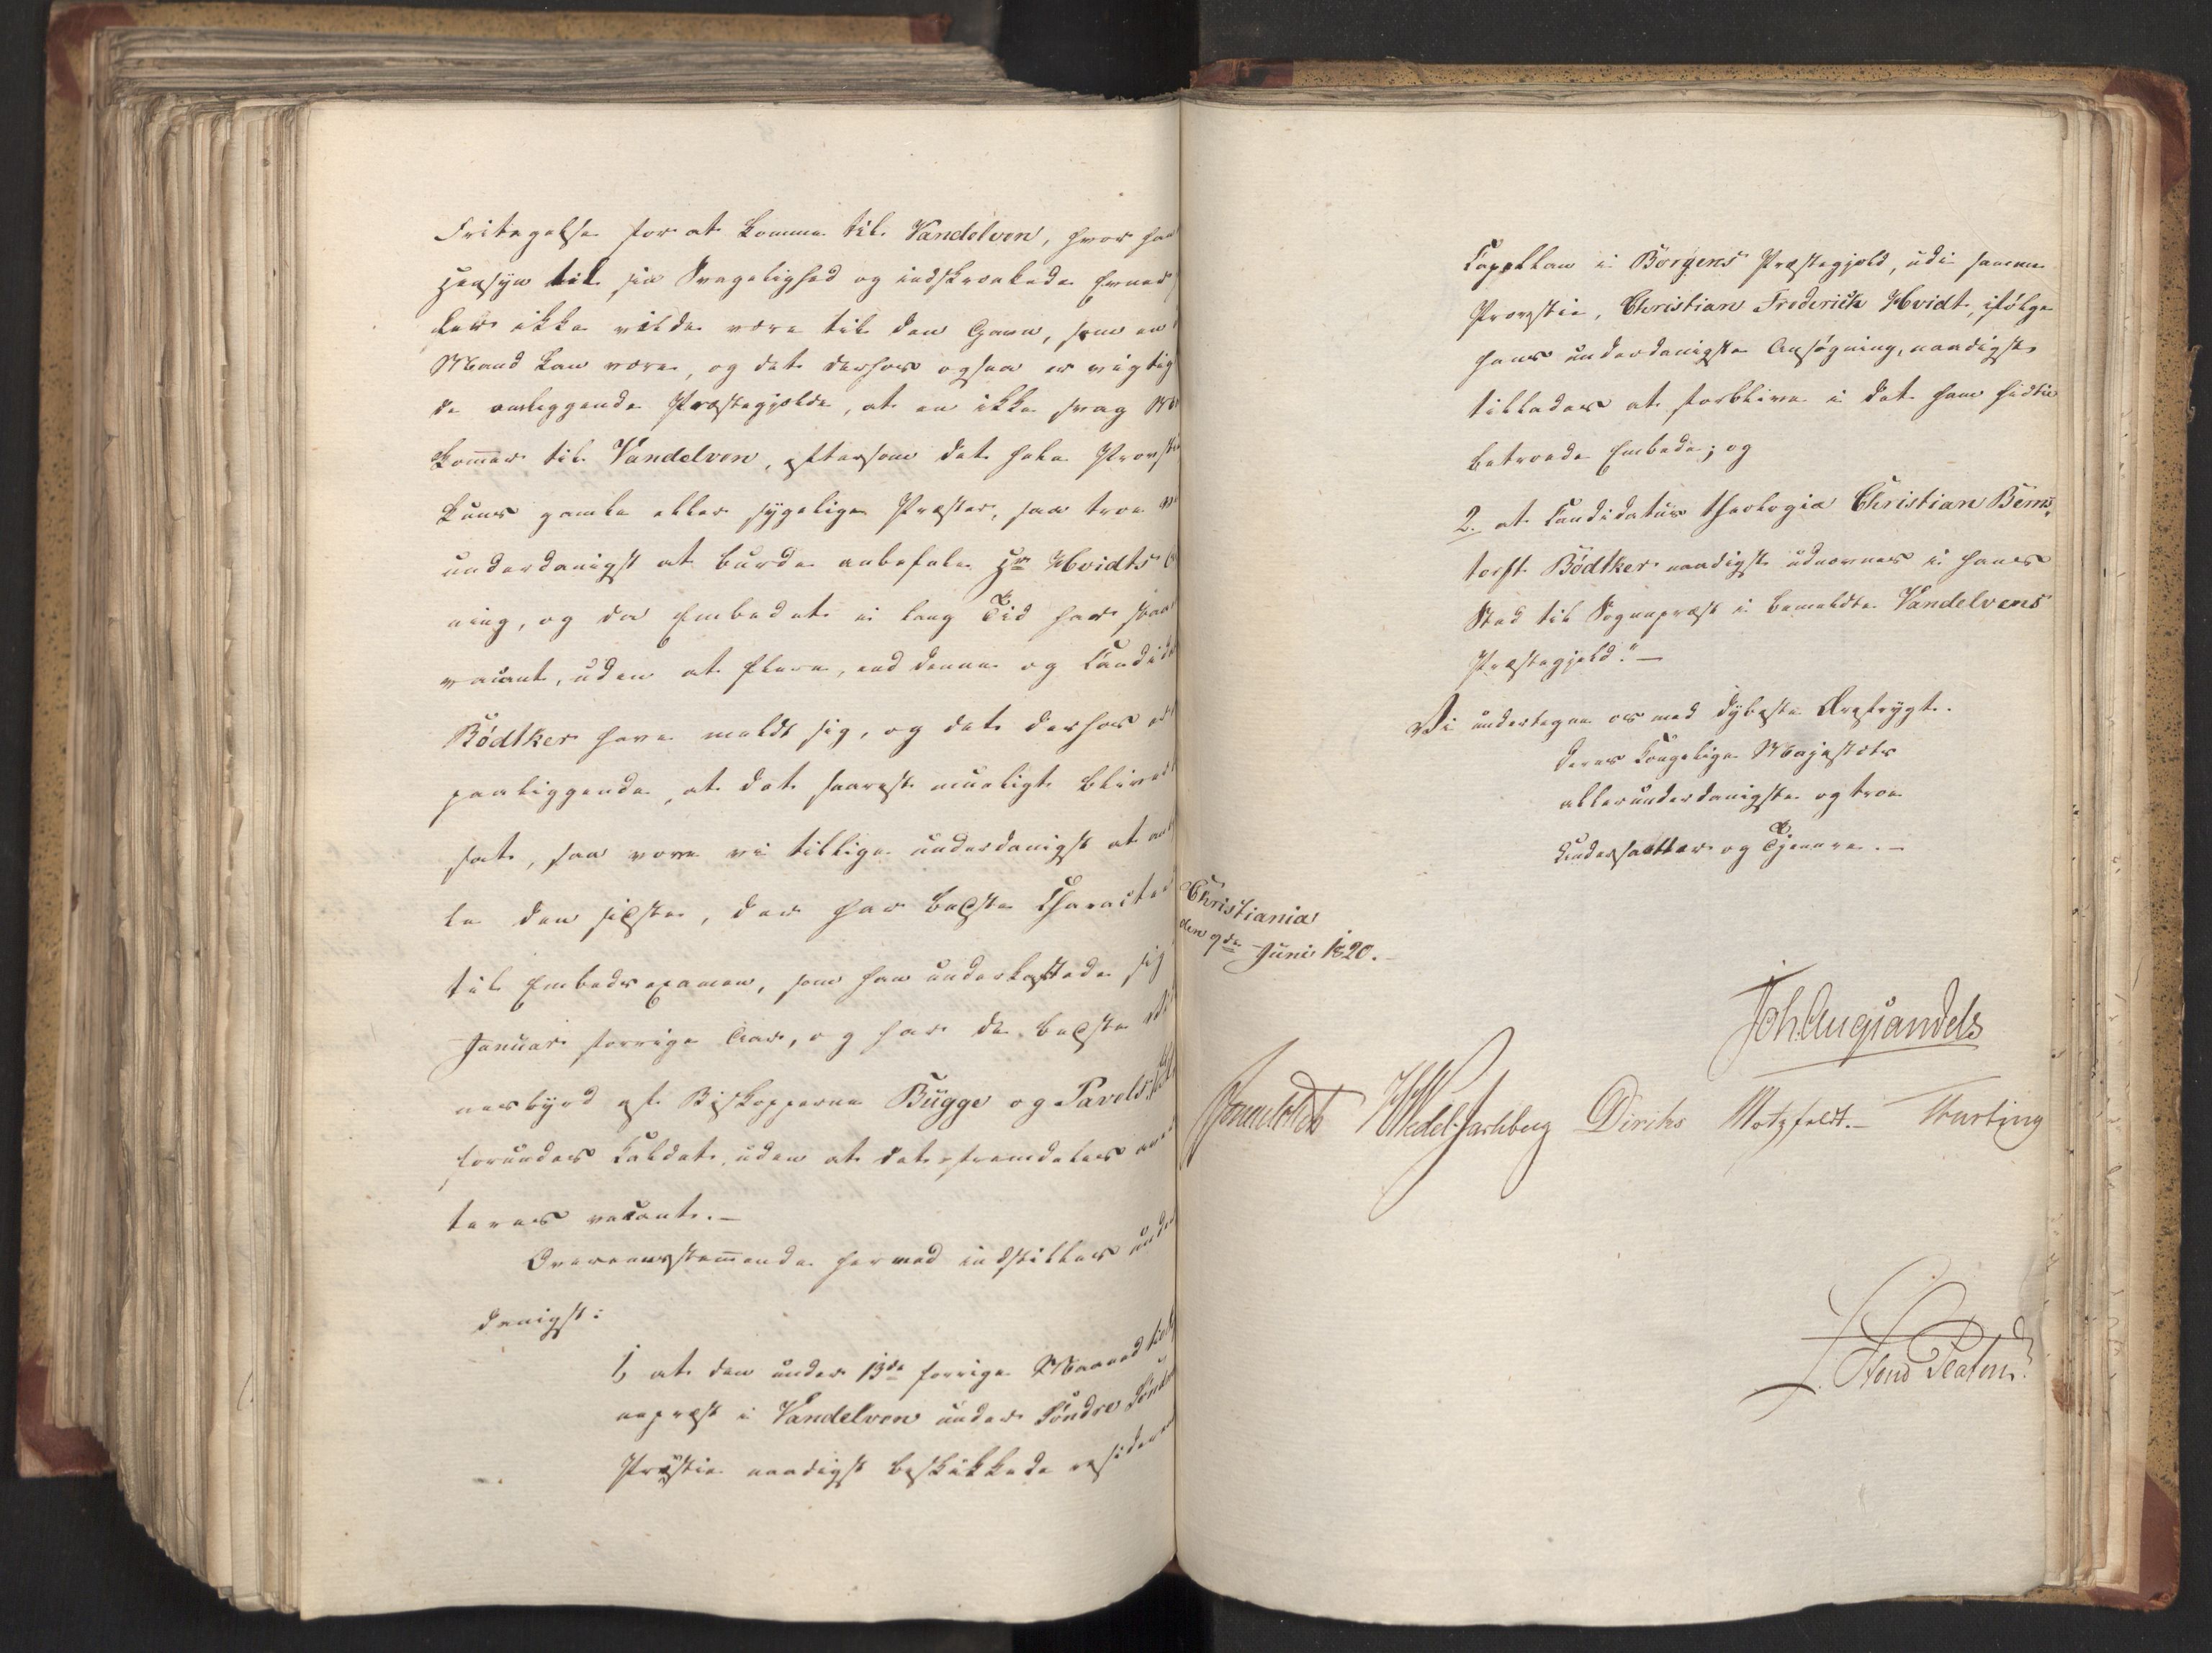 Fritagelse for at komme til Vandelven, hvor han
Hensyn til sin Svagelighed og indskrænkede Evner
ler ikke vilde være til den Gavn, som en
Mand kan være, og det derhos ogsaa er vigtigt
de omliggende Præstegjelde, at en ikke svag M
kommer til Vandelven, eftersom det hele Provstie
kuns gamle eller sygelige Præster, saa troe vi
underdanigst at burde anbefale Hr Hvidts
ning, og da Embedet i lang Tid har staaet
vacant, uden at flere, end denne og Candidat
Bödtker have meldt sig, og det derhos er
paaliggende, at det snarest mueligt bliver
sat, saa vove vi tillige underdanigst at
le den sidste, der har bedste Character
til Embedsexamen, som han underkastede sig
Januar forrige Aar, og har de bedste
nesbyrd af Biskopperne Bugge og Pavels,
forundes Kaldet, uden at det fremdeles
teres vacant.—
Overeensstem̄ende hermed indstilles under
danigst:
1, at den under 13de forrige Maaned til
nepræst i Vandelven under Söndre Söndm
Prostie naadigst beskikkede residerende
Capellan i Borgens Præstegjeld, udi samme
Provstie, Christian Frederick Hvidt, ifölge
hans underdanigste Ansögning, naadigst
tillades at forblive i det ham hidtil
betroede Embede; og
2. at Candidatus theologiæ Christian Berns,
torff Bödtker naadigst udnævnes i hans
Sted til Sognepræst i bemeldte Vandelvens
Præstegjeld."—
Vi undertegne os med dybeste Ærefrygt.
Deres Kongelige Majestæts
allerunderdanigste og troe
Undersaatter og Tjenere.—
Christiania
den 9de Juni 1820.
Joh. Aug. Sandels
Sommerhielm HWedel-Jarlsberg Diriks Motzfeldt.— Fasting